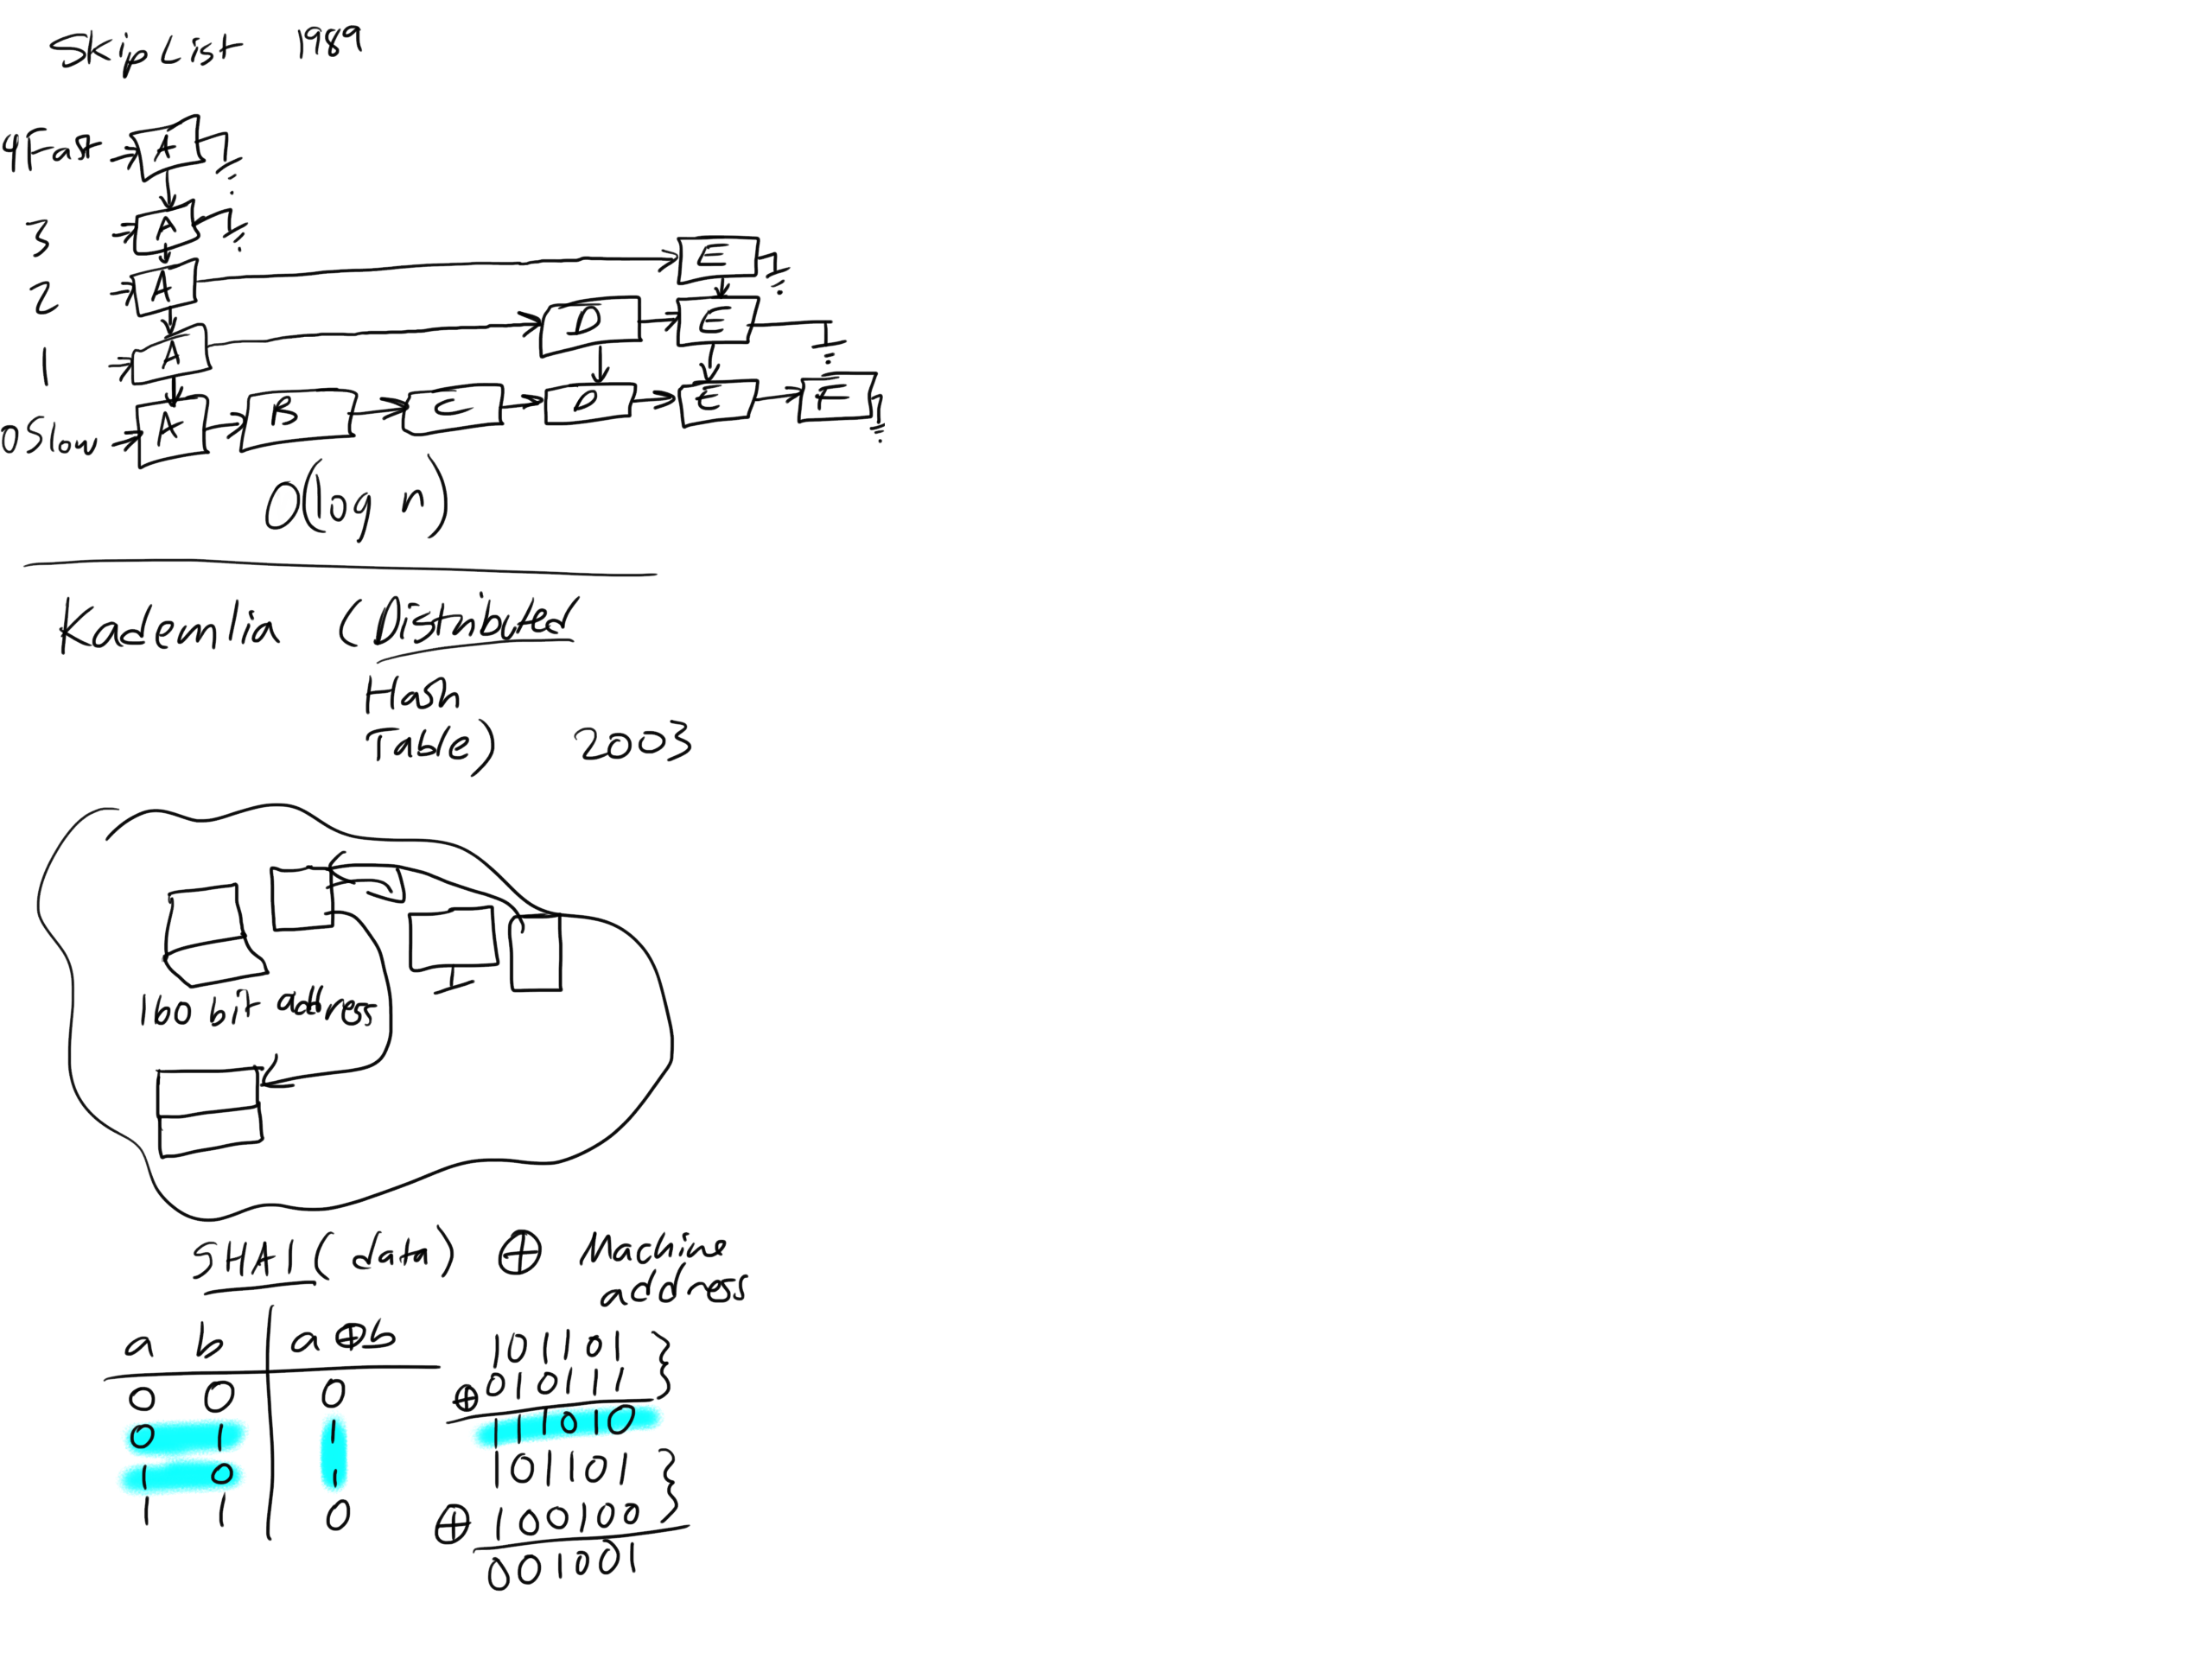 SkipList 1989
4 Fast A
3 A
2 A E
1 A D E
0 Slow A B C D E F
O(log n)
Kademlia (Distributed
Hash
Table) 2003
160 bit address
SHA1(data) ⊕ Machine
address
a b a⊕b
0 0 0
0 1 1
1 0 1
1 1 0
101101
⊕010111
111010
101101
⊕100100
001001